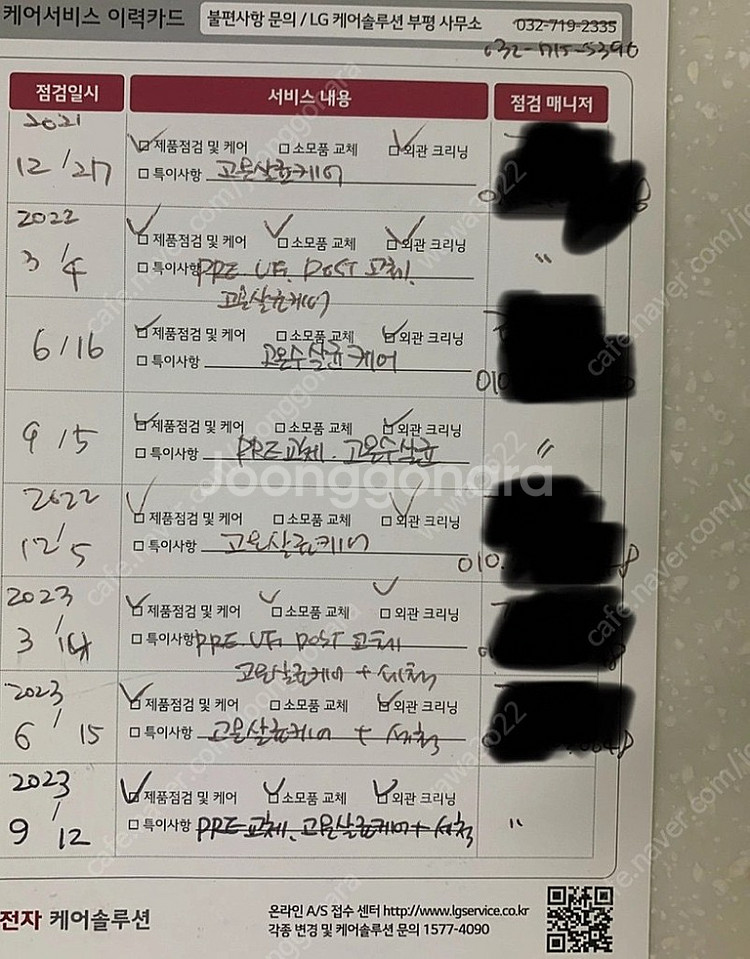 케어서비스 이력카드
불편사항 문의 / LG 케어솔루션 부평 사무소 032-719-2335
032-715-5390
점검일시 서비스 내용 점검 매니저
2021
12/27
제품점검 및 케어 소모품 교체 외관 크리닝
특이사항 고온살균케어
2022
3/4
제품점검 및 케어 소모품 교체 외관 크리닝 "
특이사항 PRE. UF. POST 교체.
고온살균케어
6/16
제품점검 및 케어 소모품 교체 외관 크리닝
특이사항 고온수살균케어
010
9/5
제품점검 및 케어 소모품 교체 외관 크리닝 "
특이사항 PRE 교체. 고온수살균
2022
12/5
제품점검 및 케어 소모품 교체 외관 크리닝
특이사항 고온살균케어
010. 8
2023
3/14
제품점검 및 케어 소모품 교체 외관 크리닝
특이사항 PRE. UF. POST 교체
고온살균케어 + 세척
2023
6/15
제품점검 및 케어 소모품 교체 외관 크리닝
특이사항 고온살균케어 + 세척
2023
9/12
제품점검 및 케어 소모품 교체 외관 크리닝 "
특이사항 PRE 교체. 고온살균케어 + 세척
전자 케어솔루션
온라인 A/S 접수 센터 http://www.lgservice.co.kr
각종 변경 및 케어솔루션 문의 1577-4090
Joonggonara